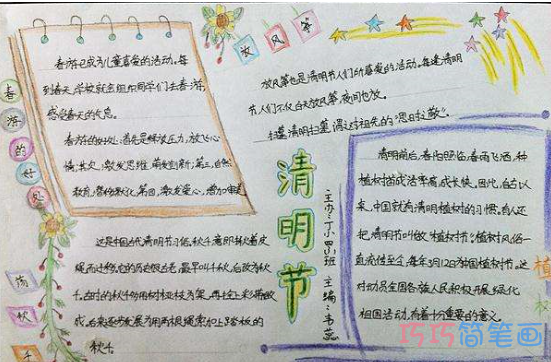 春游的好处
春游已成为儿童喜爱的活动。每
到春天，学校就会组织同学们去春游，
感受春天的气息。
春游的好处：首先是解放压力，放飞心
情；其次，激发思维，萌发创新；第三，自然
教育，替代教化；第四，激发爱心，
放风筝
放风筝也是清明节人们所喜爱的活动。每逢清明
节，人们不仅白天放风筝，夜间也放。
扫墓
清明扫墓，谓之对祖先的“思时之敬”。
清明节
主办：丁小 班 主编：
荡秋千
这是中国古代清明节习俗，秋千意即揪着皮
绳而迁移。它的历史很古老，最早叫千秋，后改为秋
千。古时的秋千多用树桠枝为架，再拴上彩带做
成。后来逐步发展为用两根绳索加上踏板的
秋千。
植
清明前后，春阳照临，春雨飞洒，种
植树苗成活率高，成长快。因此，自古以
来，中国就有清明植树的习惯。有人还
把清明节叫做“植树节”。植树风俗一
直流传至今。每年3月12日为中国植树节。这
对动员全国各族人民积极开展绿化
祖国活动，有着十分重要的意义。
巧巧简笔画